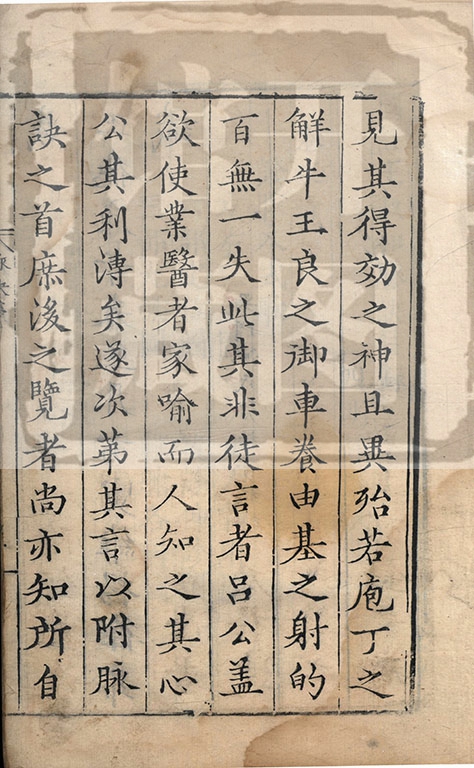 見其得効之神且異殆若庖丁之
觧牛王良之御車養由基之射的
百無一失此其非徒言者呂公盖
欲使業醫者家喻而人知之其心
公其利溥矣遂次第其言以附脉
訣之首庶後之覽者尚亦知所自